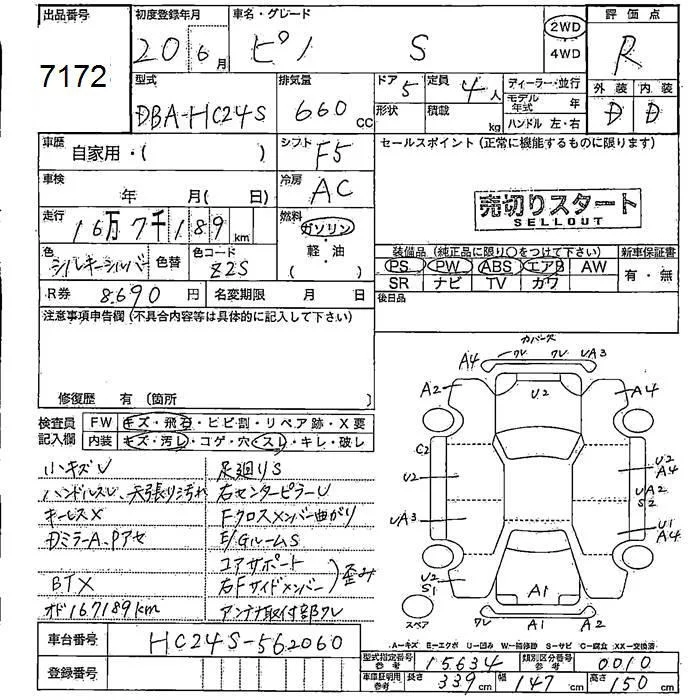 出品番号
7172
初度登録年月
20 6月
車名・グレード
ピノ S
2WD
4WD
評価点
R
外装 内装
D D
型式
DBA-HC24S
排気量
660 cc
ドア 5
定員 4人
形状
積載 kg
ディーラー・並行
モデル年式 年
ハンドル 左・右
車歴
自家用・( )
シフト
F5
車検
年 月( 日)
冷房
AC
走行
16万7千189km
燃料
ガソリン・軽油
( )
色
シルキーシルバー
色替
色コード
Z2S
R券 8,690円
名変期限 月 日
セールスポイント (正常に機能するものに限ります)
売切りスタート
SELLOUT
装備品 (純正品に限り○をつけて下さい)
新車保証書
PS PW ABS エアB AW
有・無
SR ナビ TV カワ
後日品
注意事項申告欄(不具合内容等は具体的に記入して下さい)
修復歴 有 (箇所 )
検査員記入欄
FW キズ・飛石・ヒビ・割・リペア跡・X要
内装 キズ・汚レ・コゲ・穴・スレ・キレ・破レ
小キズU
ハンドルスレ、天張り汚れ
キーレスX
DミラーA、Pアセ
BTX
オド167189km
足廻りS
右センターピラーU
Fクロスメンバー曲がり
E/GルームS
コアサポート
右Fサイドメンバー
歪み
アンテナ取付部ワレ
車台番号
HC24S-562060
登録番号
カバーズ
A4 ワレ ワレ UA3
A2 U2 A4
C2
U2 U2 A4
UA2 S2
UA3 U1 A4
U2 S1
スペア
A1
ワレ A1 A2
A―キズ E―エクボ U―凹み W―補修跡 S―サビ C―腐食 XX―交換済
型式指定番号 参考
15634
類別区分番号 参考
0010
車庫証明用参考
長さ 339cm
幅 147cm
高さ 150cm